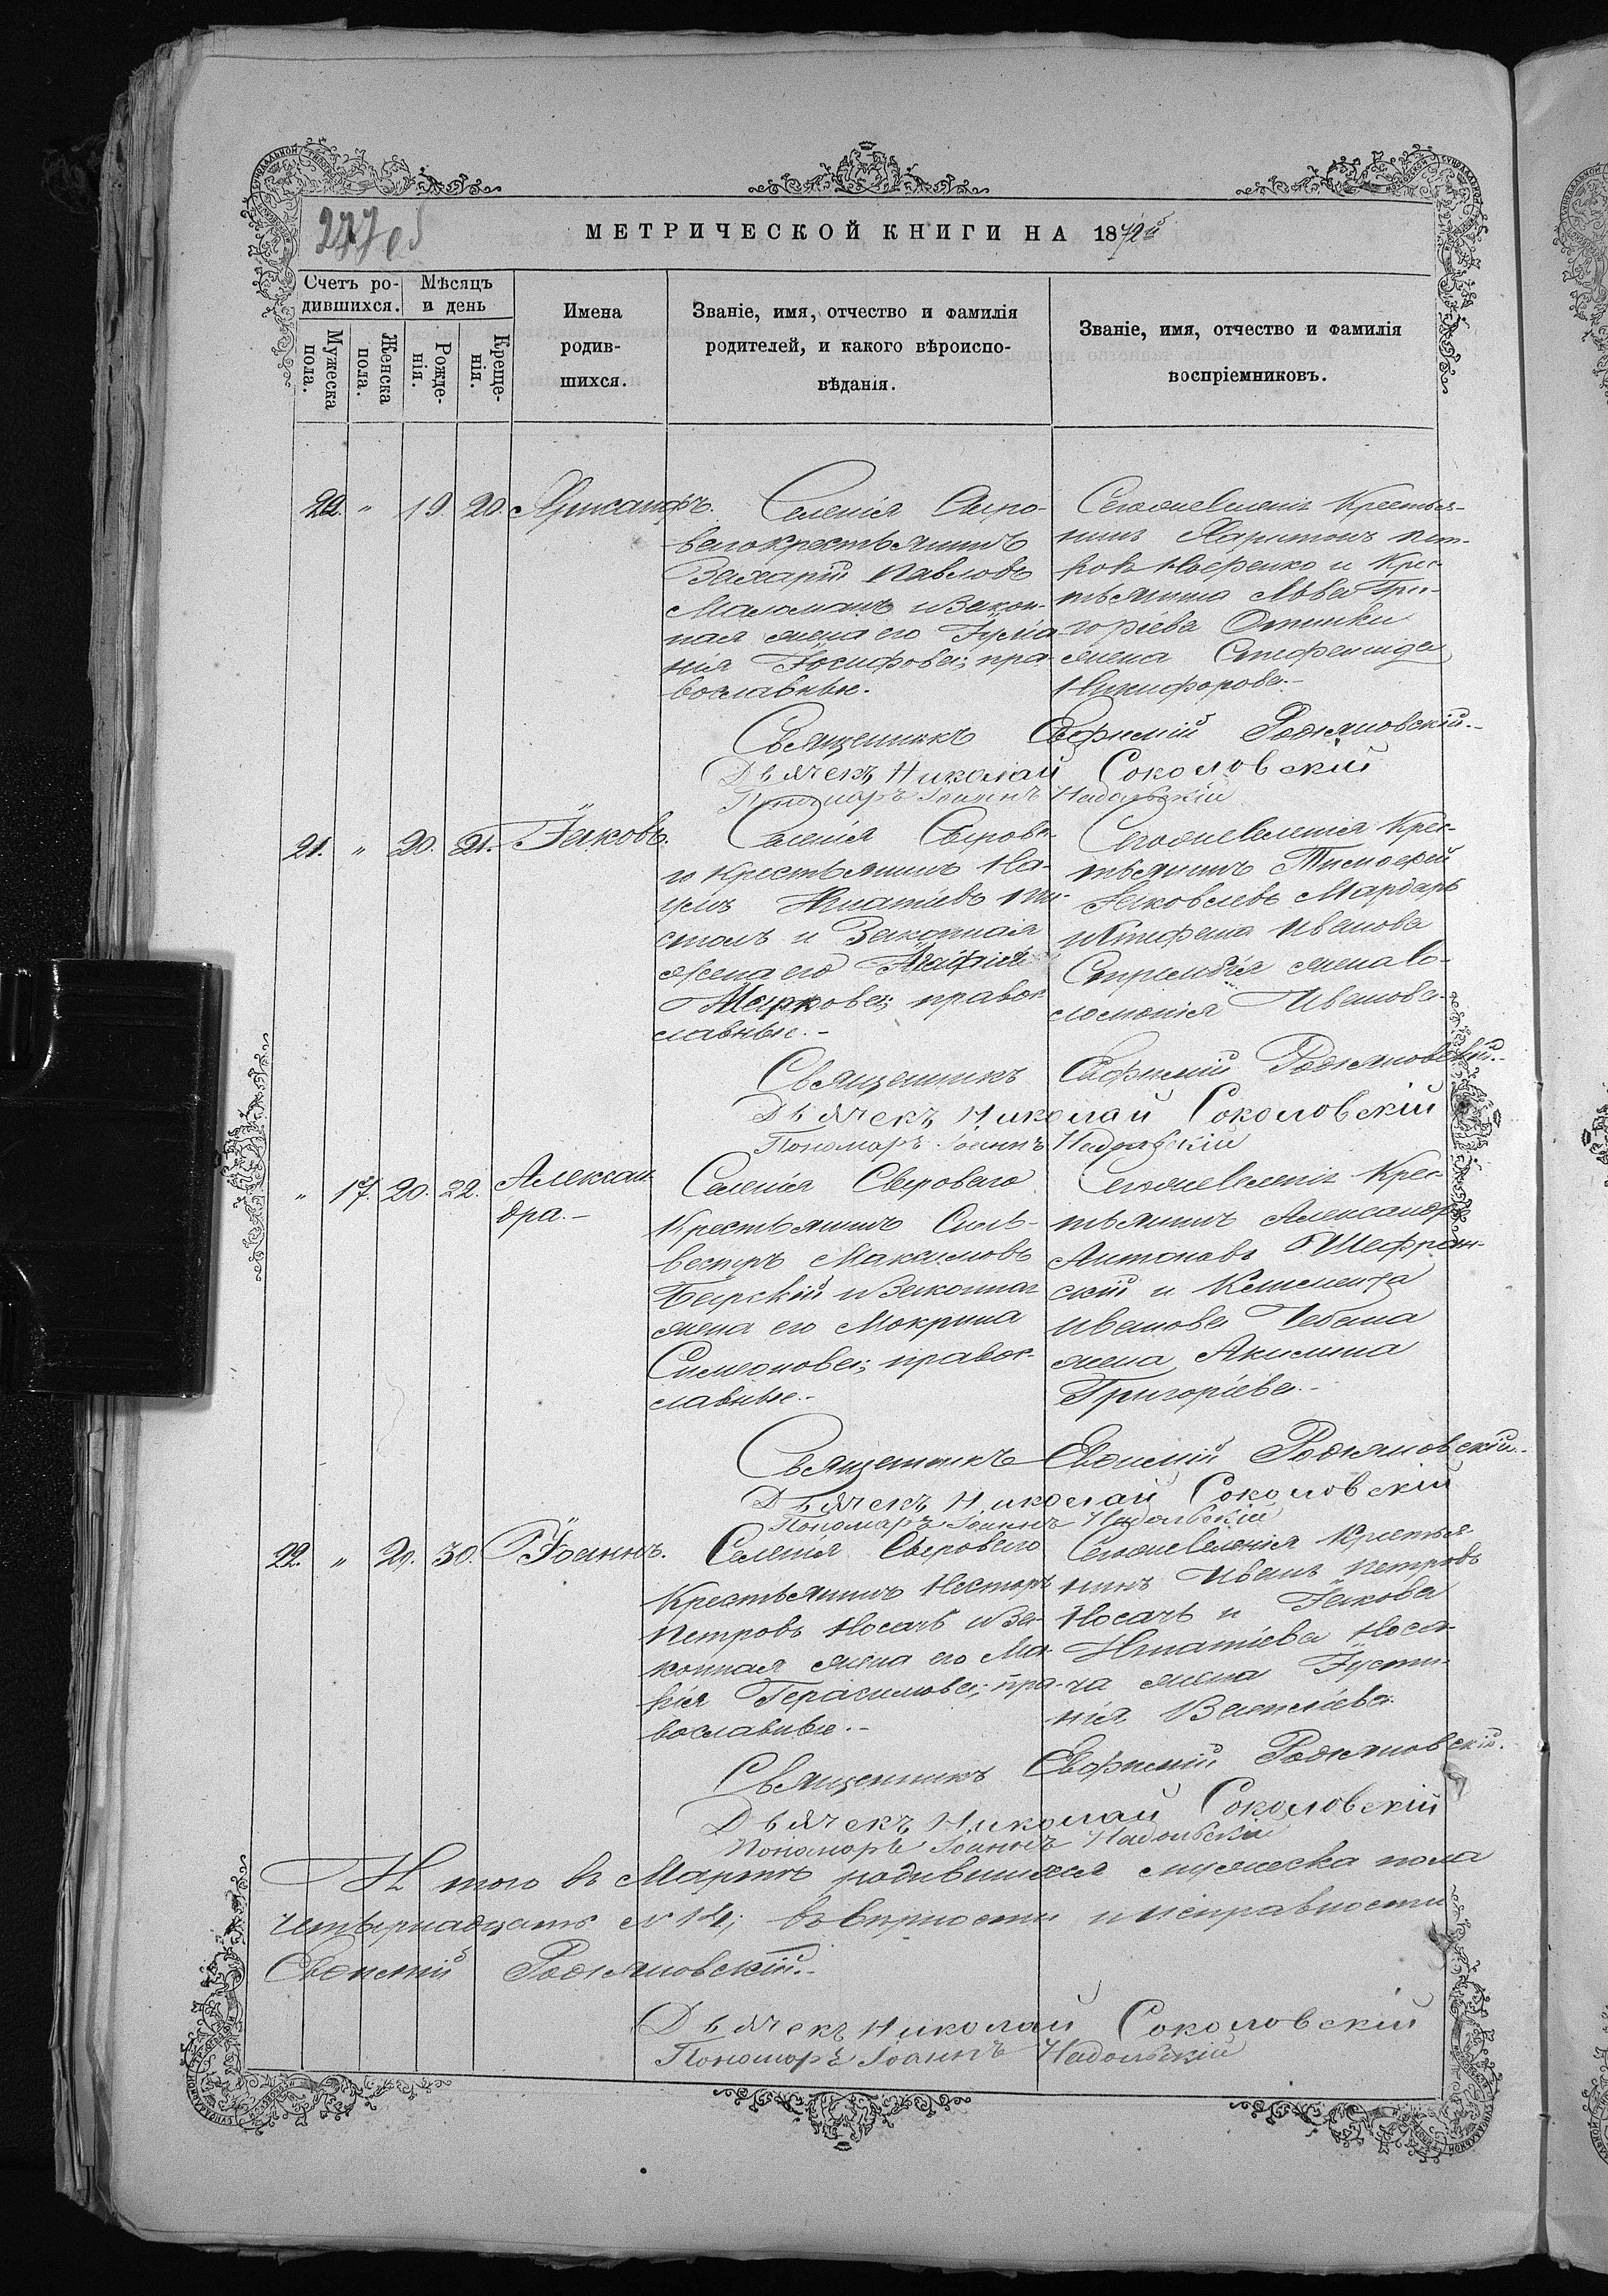 277 об
МЕТРИЧЕСКОЙ КНИГИ НА 1872й
Счетъ ро-
дившихся.
Мѣсяцъ
и день
Мужеска
пола.
Женска
пола.
Рожде-
нія.
Креще-
нія.
Имена
родив-
шихся.
Званіе, имя, отчество и фамилія
родителей, и какого вѣроиспо-
вѣданія.
Званіе, имя, отчество и фамилія
воспріемниковъ.
„ 19. 20. Хрисанфъ.
Селенія Сыро-
ваго крестьянинъ
Захарій Павловъ
Маломанъ и Закон-
ная жена его Іулiа-
нія Іосифова; пра-
вославные.
Сегоже Селенія Крестья-
нинъ Харитонъ
и Крес-
тьянина Льва Гри-
горіева
жена Стефанида
Никифорова.
Священникъ Евфимій Родзяновскій.
Дьячекъ Николай Соколовскій
Пономарь Іоаннъ Надольскій
21. „ 20. 21. Іаковъ.
Селенія Сырова-
го Крестьянинъ На-
умъ Игнатіевъ
и Законная
жена его Агафія
Маркова; правос-
лавные.-
Сегоже Селенія Крес-
тьянинъ Тимофей
Яковлевъ Мардарь
и Стефана Иванова
жена Со-
ломонія Иванова
Священникъ Евфимій Родзяновскій.
Дьячекъ Николай Соколовскій
Пономарь Іоаннъ Надольскій
„ 17. 20. 22. Алексан-
дра.-
Селенія Сыроваго
Крестьянинъ Силь-
вестръ Максимовъ
Барскій и Законная
жена его Мокрина
Симеонова; правос-
лавные.-
Сегоже Селенія Крес-
тьянинъ Александръ
Антоновъ Шефран-
скій и Климента
Иванова Чебана
жена Акилина
Григоріева.-
Священникъ Евфимій Родзяновскій.
Дьячекъ Николай Соколовскій
Пономарь Іоаннъ Надольскій
22. „ 29. 30. Іоаннъ.
Селенія Сыроваго
Крестьянинъ Несторъ
Петровъ Носачъ и За-
конная жена его Ма-
рія Герасимова; пра-
вославные.-
Сегоже Селенія Крестья-
нинъ Иванъ Петровъ
Носачъ и Іакова
Игнатіева Носа-
ча жена Іусти-
нія Васильева.
Священникъ Евфимій Родзяновскій.
Дьячекъ Николай Соколовскій
Пономарь Іоаннъ Надольскій
И того въ Мартѣ родившихся мужеска пола
четырнадцать № 14; въ вѣрности и исправности
Евфимій Родзяновскій.-
Дьячекъ Николай Соколовскій
Пономарь Іоаннъ Надольскій